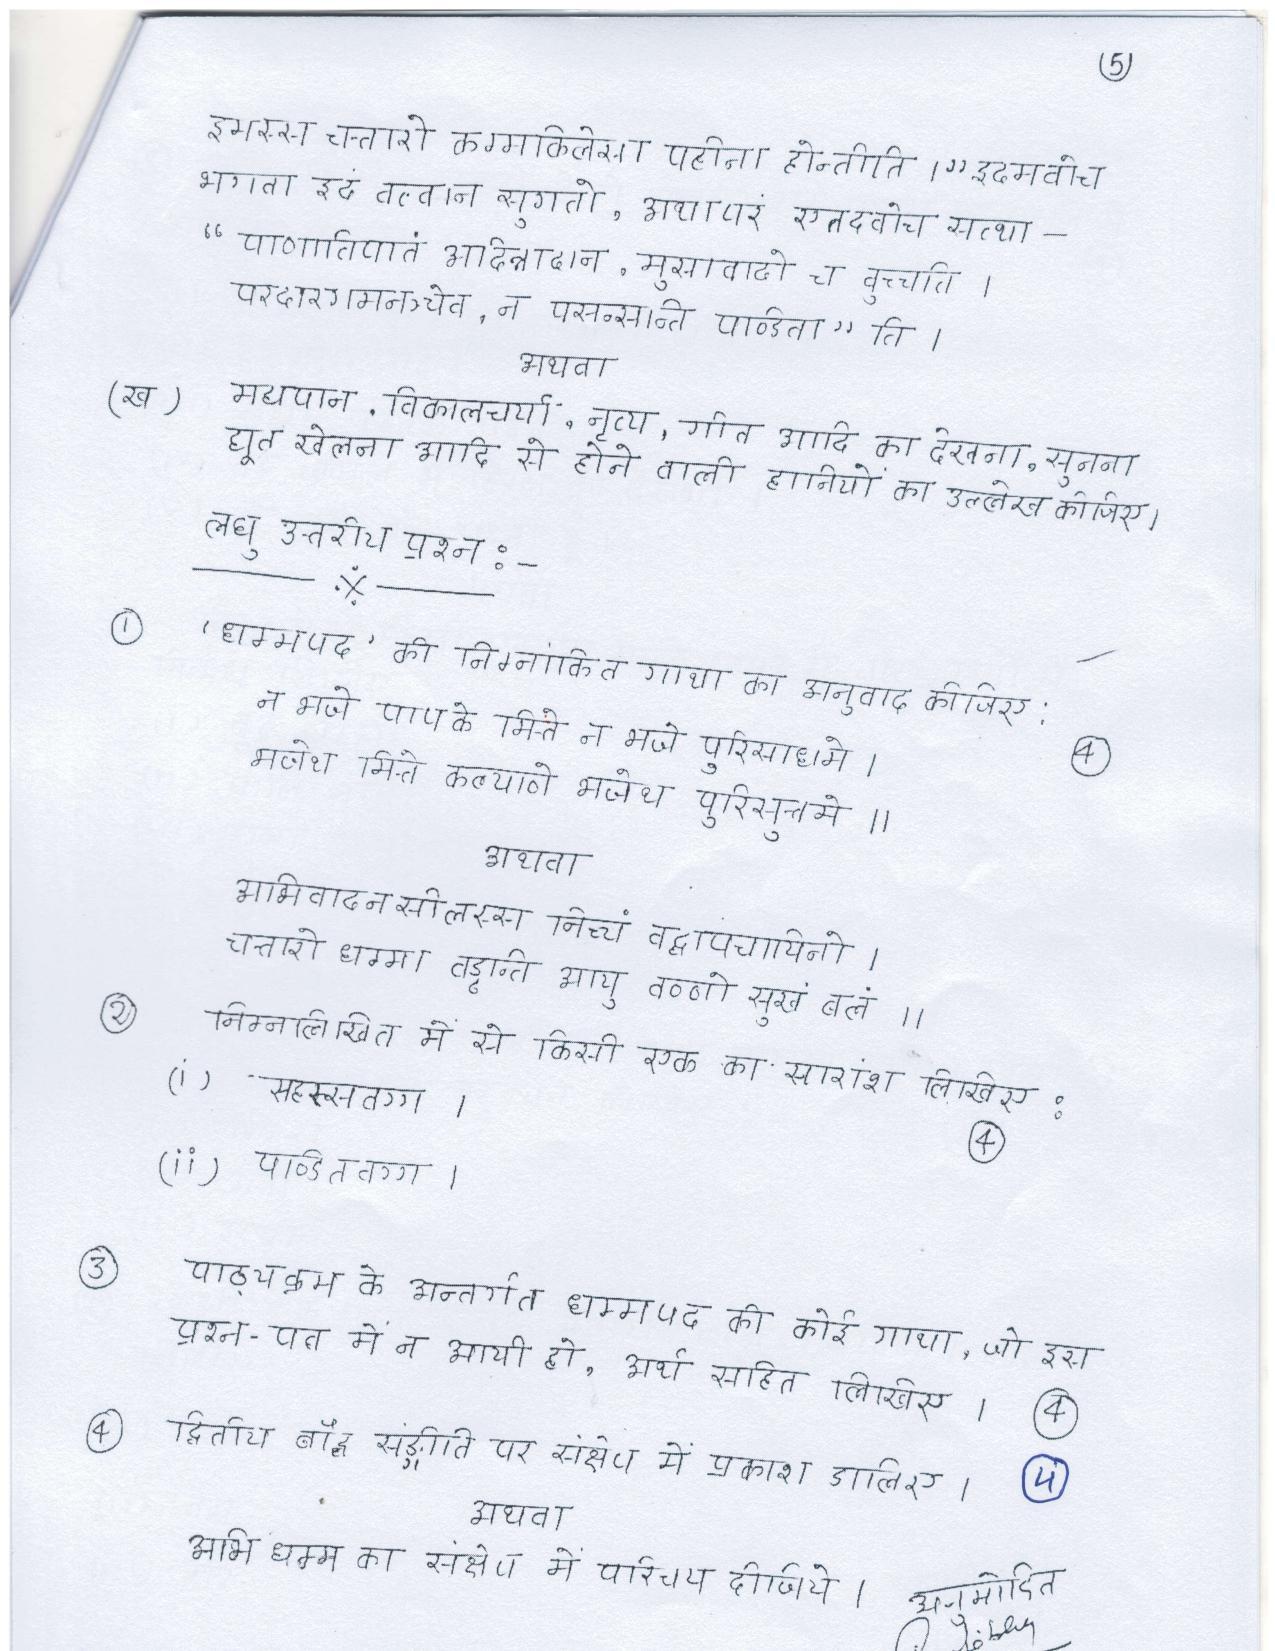 (5)
इमस्स चत्तारो कम्मकिलेसा पहीना होन्तीति ।” इदमवोच
भगवा इदं वत्वान सुगतो, अथापरं एतदवोच सत्था –
“ पाणातिपातं अदिन्नादान, मुसावादो च वुच्चति ।
परदारगमनञ्चेव, न पसन्सन्ति पण्डिता ” ति ।
अथवा
(ख) मद्यपान, विकालचर्या, नृत्य, गीत आदि का देखना, सुनना
द्यूत खेलना आदि से होने वाली हानियों का उल्लेख कीजिए।
लघु उत्तरीय प्रश्न :-
① ‘धम्मपद’ की निम्नांकित गाथा का अनुवाद कीजिए :
न भजे पापके मित्ते न भजे पुरिसाधमे ।
④
भजेथ मित्ते कल्याणे भजेथ पुरिसुत्तमे ।।
अथवा
अभिवादनसीलस्स निच्चं वद्धापचायिनो ।
चत्तारो धम्मा वड्ढन्ति आयु वण्णो सुखं बलं ।।
② निम्नलिखित में से किसी एक का सारांश लिखिए :
(i) सहस्सवग्ग ।
④
(ii) पण्डितवग्ग ।
③ पाठ्यक्रम के अन्तर्गत धम्मपद की कोई गाथा, जो इस
प्रश्न-पत्र में न आयी हो, अर्थ सहित लिखिए । ④
④ द्वितीय बौद्ध सङ्गीति पर संक्षेप में प्रकाश डालिए । ④
अथवा
अभिधम्म का संक्षेप में परिचय दीजिये ।
अनुमोदित